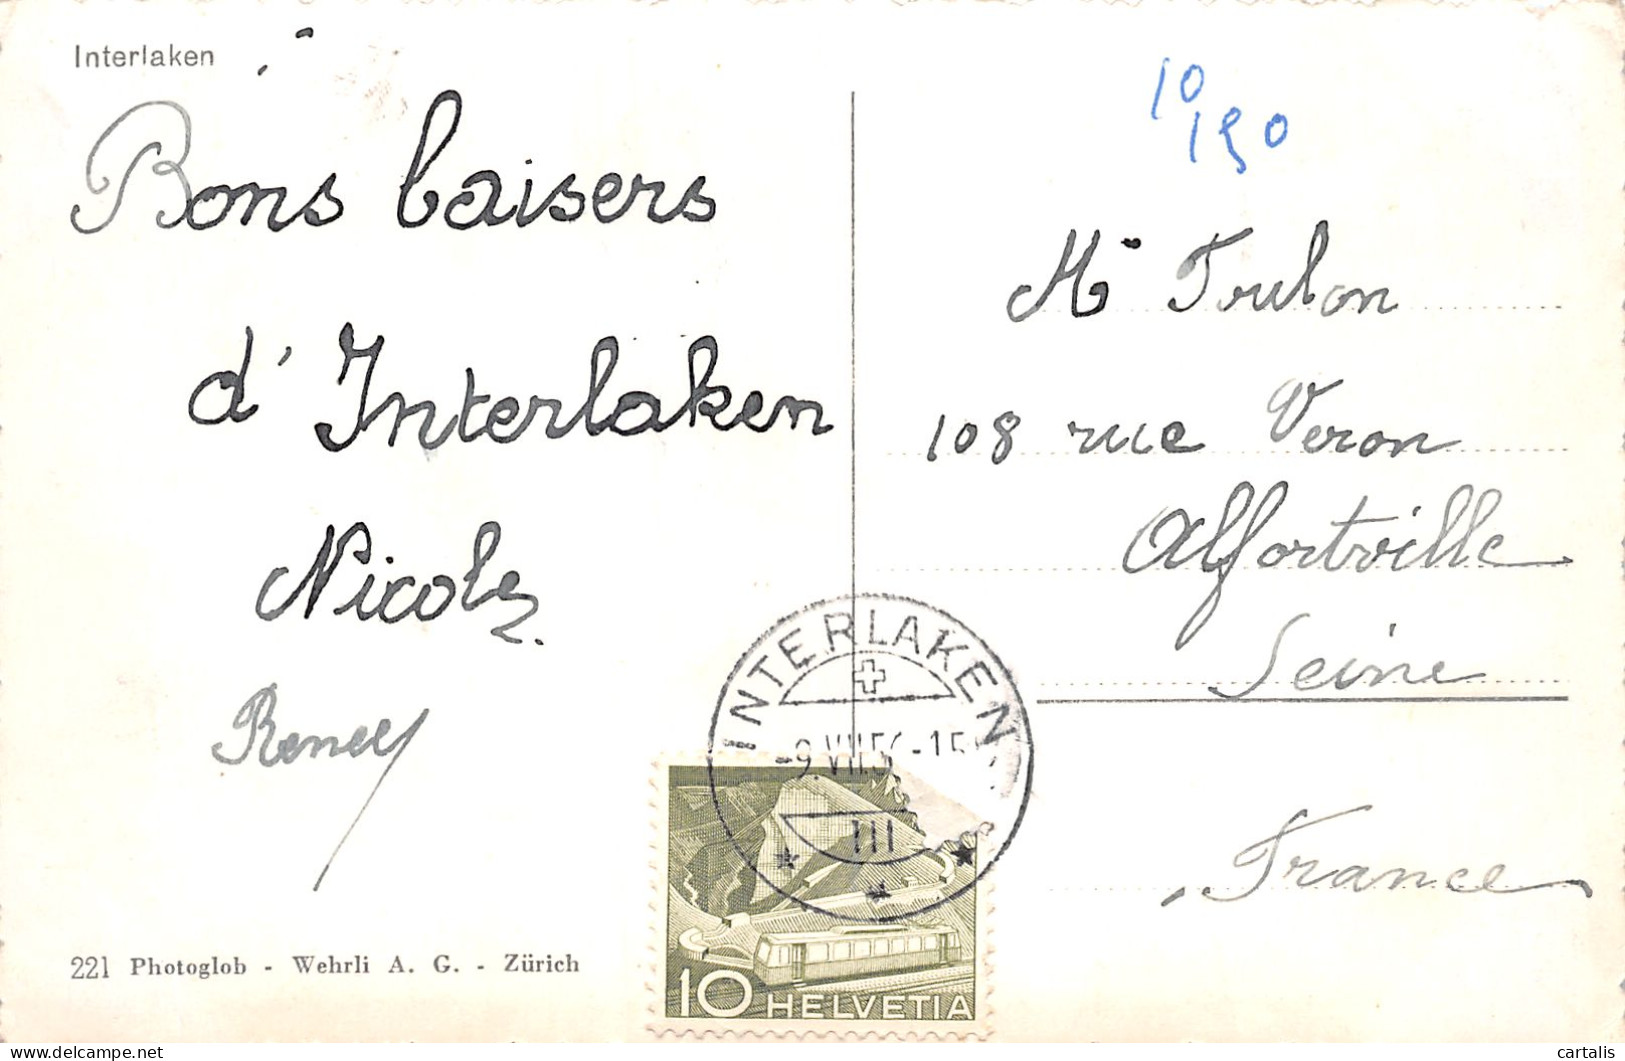 Interlaken
Bons baisers
d'Interlaken
Nicole
221 Photoglob - Wehrli A. G. - Zürich
10
190
Mr Trulon
108 rue Veron
Alfortville
Seine
France
INTERLAKEN
-9.VII.5
-15
III
10 HELVETIA
cartalis
delcampe.net